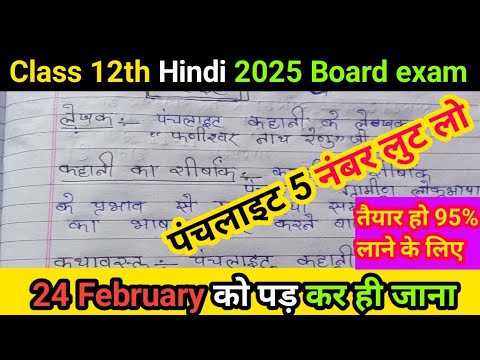 Class 12th Hindi 2025 Board exam
लेखक :- पंचलाइट कहानी के लेखक
"फणीश्वर नाथ रेणु" जी
कहानी का शीर्षक :-
ग्रामीण लोकभाषा
के प्रभाव से
का भाष
करने वा
कथावस्तु :- पंचलाइट कहानी
पंचलाइट 5 नंबर लुट लो
तैयार हो 95%
लाने के लिए
24 February को पड़ कर ही जाना